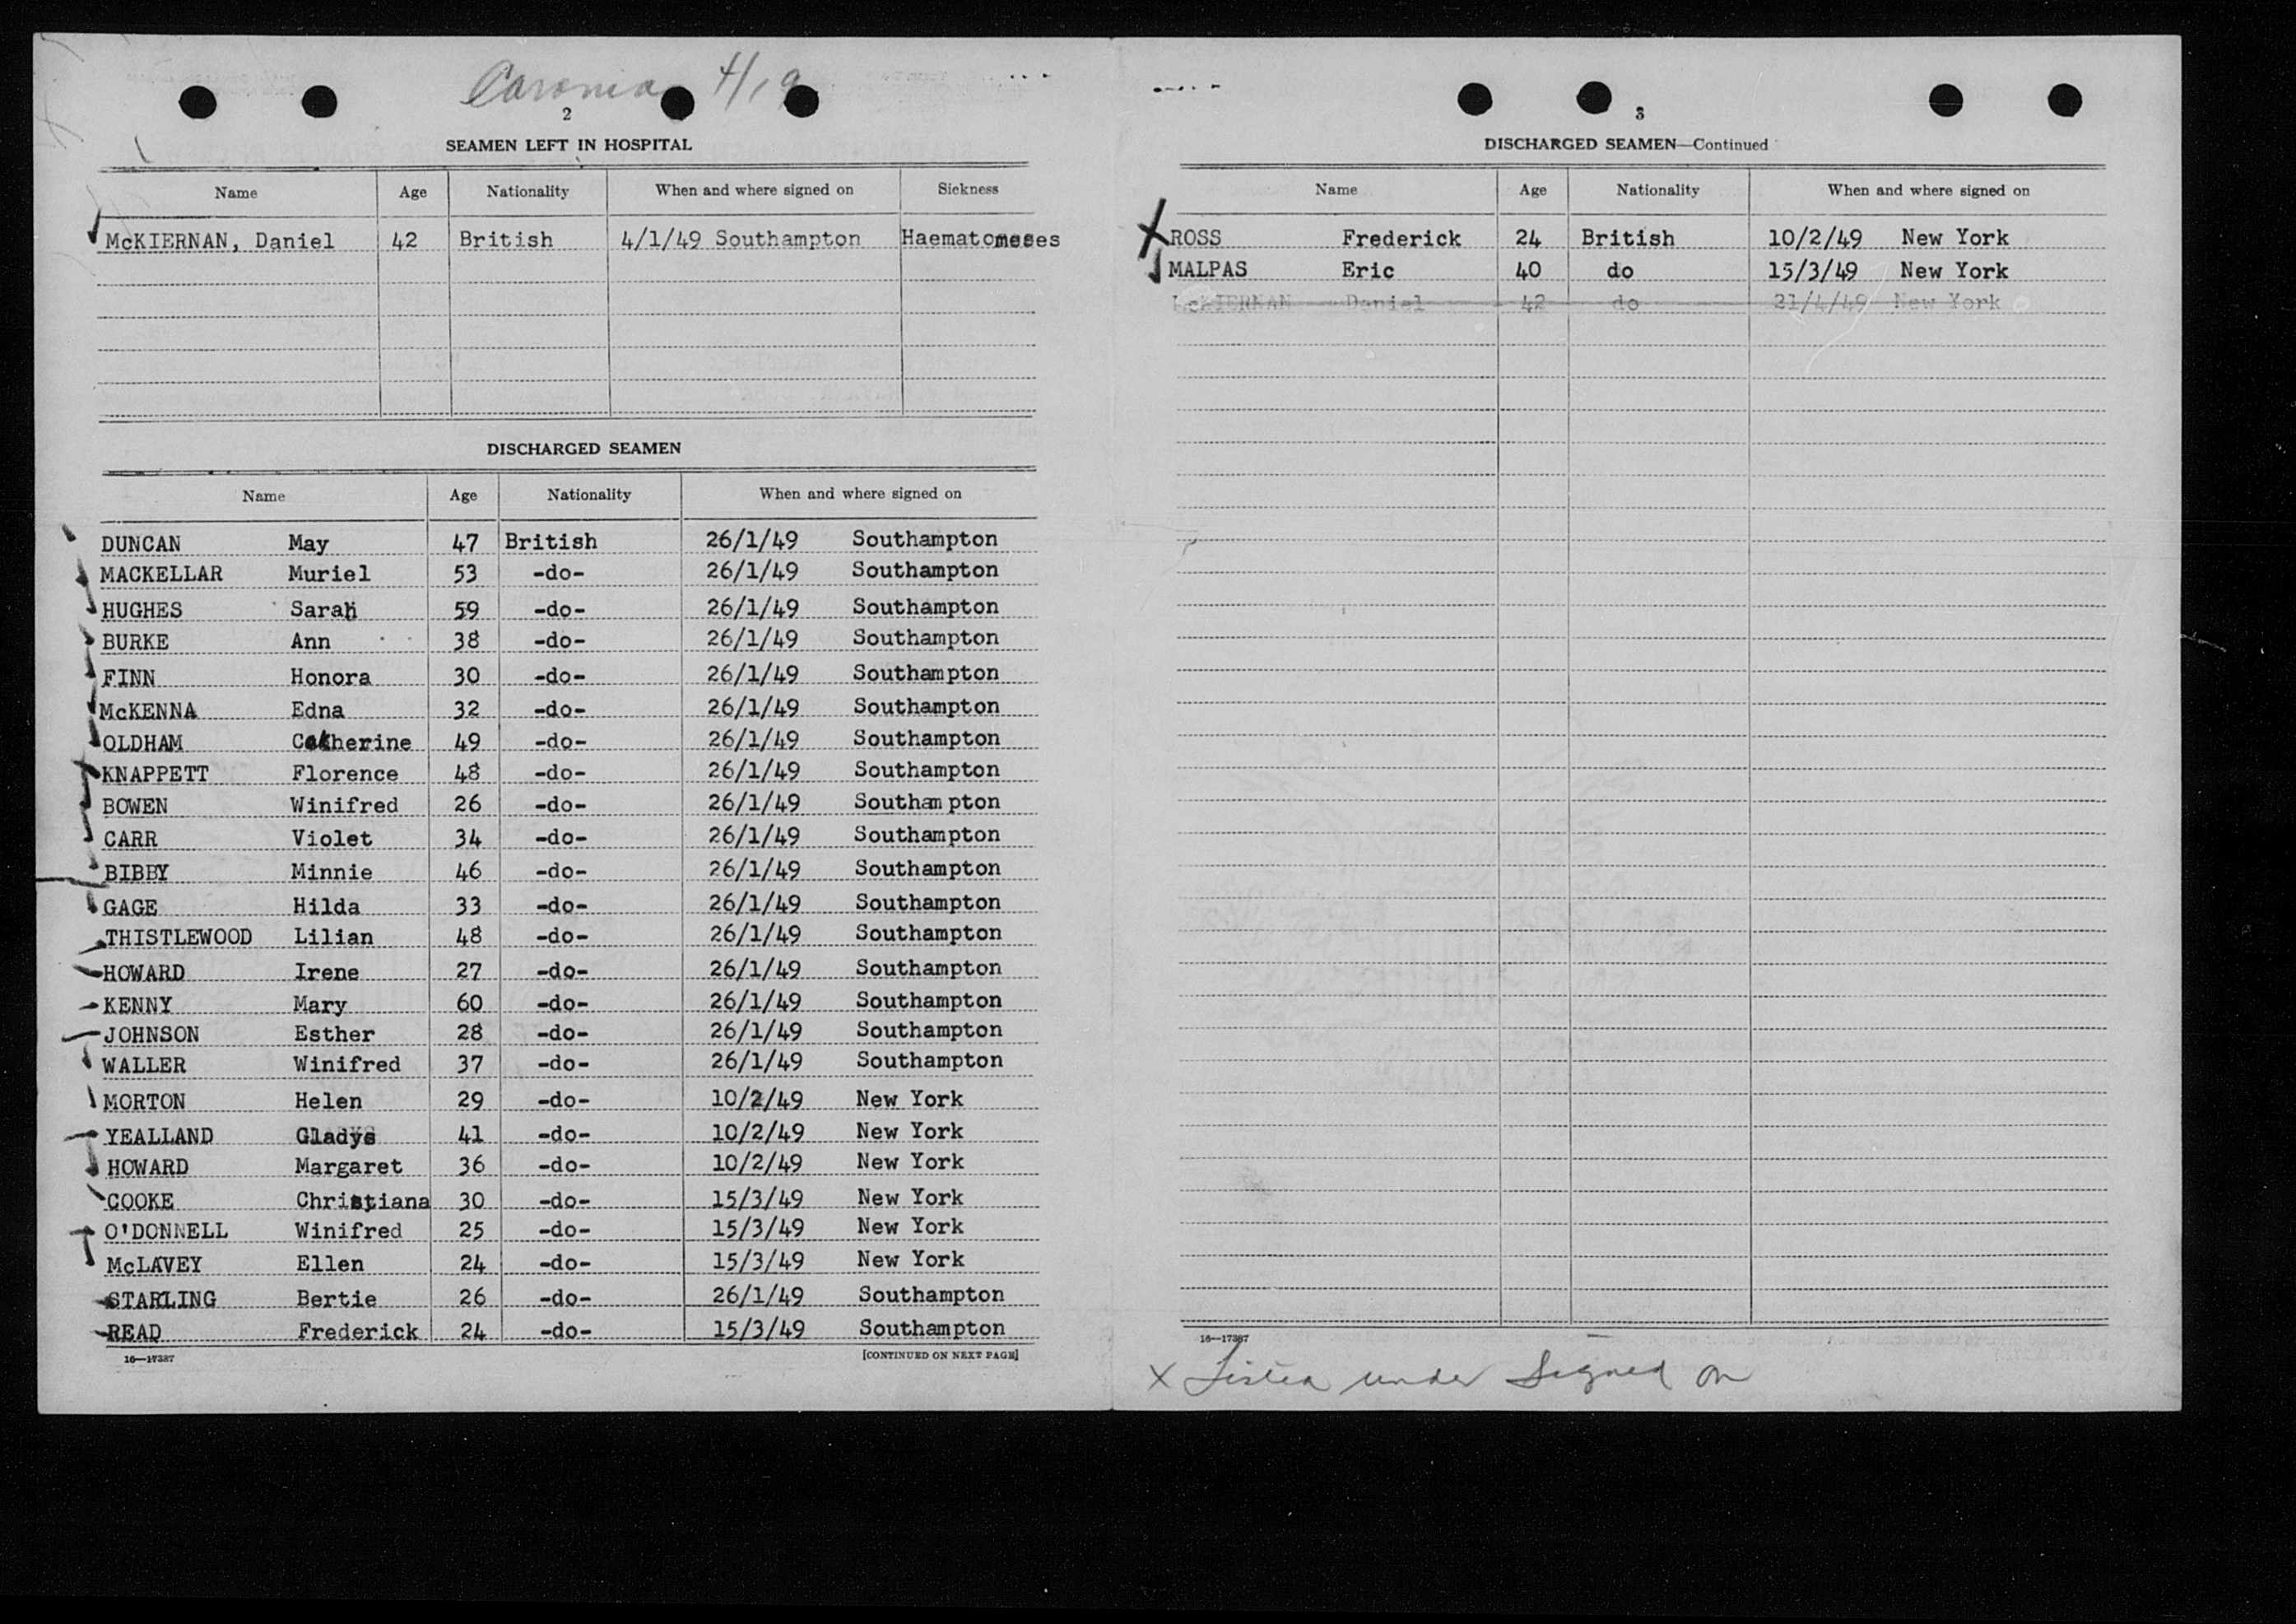 Caronia 4/19
2
SEAMEN LEFT IN HOSPITAL
Name Age Nationality When and where signed on Sickness
McKIERNAN, Daniel 42 British 4/1/49 Southampton Haematomeses
DISCHARGED SEAMEN
Name Age Nationality When and where signed on
DUNCAN May 47 British 26/1/49 Southampton
MACKELLAR Muriel 53 -do- 26/1/49 Southampton
HUGHES Sarah 59 -do- 26/1/49 Southampton
BURKE Ann 38 -do- 26/1/49 Southampton
FINN Honora 30 -do- 26/1/49 Southampton
McKENNA Edna 32 -do- 26/1/49 Southampton
OLDHAM Catherine 49 -do- 26/1/49 Southampton
KNAPPETT Florence 48 -do- 26/1/49 Southampton
BOWEN Winifred 26 -do- 26/1/49 Southampton
CARR Violet 34 -do- 26/1/49 Southampton
BIBBY Minnie 46 -do- 26/1/49 Southampton
GAGE Hilda 33 -do- 26/1/49 Southampton
THISTLEWOOD Lilian 48 -do- 26/1/49 Southampton
HOWARD Irene 27 -do- 26/1/49 Southampton
KENNY Mary 60 -do- 26/1/49 Southampton
JOHNSON Esther 28 -do- 26/1/49 Southampton
WALLER Winifred 37 -do- 26/1/49 Southampton
MORTON Helen 29 -do- 10/2/49 New York
YEALLAND Gladys 41 -do- 10/2/49 New York
HOWARD Margaret 36 -do- 10/2/49 New York
COOKE Christiana 30 -do- 15/3/49 New York
O'DONNELL Winifred 25 -do- 15/3/49 New York
McLAVEY Ellen 24 -do- 15/3/49 New York
STARLING Bertie 26 -do- 26/1/49 Southampton
READ Frederick 24 -do- 15/3/49 Southampton
16—17387
[CONTINUED ON NEXT PAGE]
3
DISCHARGED SEAMEN—Continued
Name Age Nationality When and where signed on
X ROSS Frederick 24 British 10/2/49 New York
MALPAS Eric 40 do 15/3/49 New York
McKIERNAN Daniel 42 do 21/4/49 New York
16—17387
X Listed under Signed on